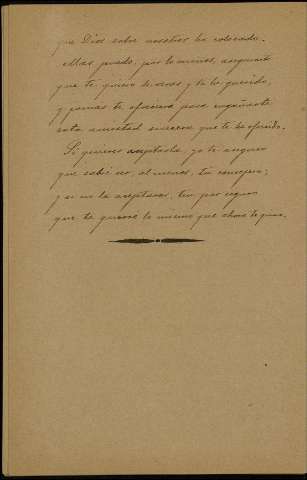 que Dios sobre nosotros ha colocado.
Mas puedo, por lo menos, asegurarte
que te quiero de veras y te he querido,
y jamás te ofreciera para engañarte
esta amistad sincera que te he ofrecido.
Si quieres aceptarla, yo te aseguro
que sabré ser, al menos, tu consejero;
y si no la aceptaras, ten por seguro
que te querré lo mismo que ahora te quiero.